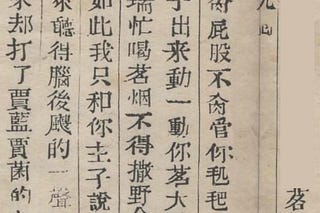 茗
九回
肏屁股不肏管你𣬠𣬶
子出來動一動你茗大
瑞忙喝茗烟不得撒野
如此我只和你主子說
聽得腦後颼的一聲
來却打了賈藍賈菌的